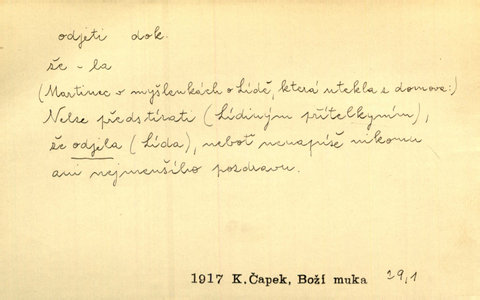 odjeti dok.
že - la
(Martinec v myšlenkách o Lídě, která utekla z domova:)
Nelze předstírati (Lídiným přítelkyním),
že odjela (Lída), neboť nenapíše nikomu
ani nejmenšího pozdravu.
1917 K.Čapek, Boží muka 29,1